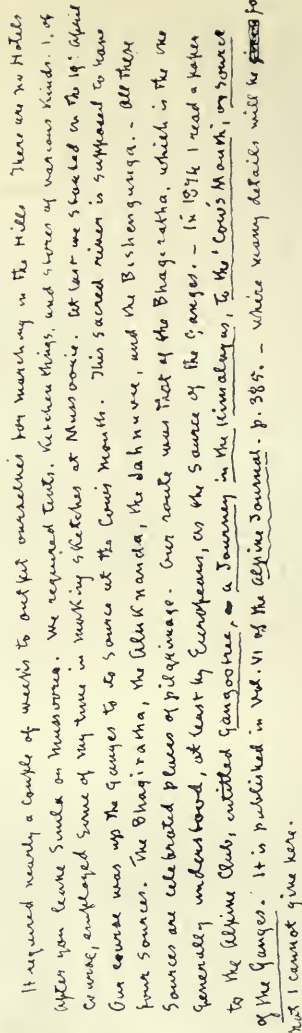 It required nearly a couple of weeks to outfit ourselves for marching in the Hills There are no Hotels
after you leave Simla or Mussoorie. We required tents. Kitchen things, and stores of various kinds. I, of
course, employed some of my time in making sketches at Mussoorie. At last we started on the 19th April
Our course was up the Ganges to its source at the Cows mouth. This sacred river is supposed to have
four sources. The Bhagiratha, the Aluknanda, the Jahnuvie, and the Bishengunga. - All these
sources are celebrated places of pilgrimage. Our route was that of the Bhagiratha, which is the one
generally understood, at least by Europeans, as the Source of the Ganges. - In 1874 I read a paper
to the Alpine Club, entitled Gangootree, a Journey in the Himalayas, to the 'Cow's Mouth, or source
of the Ganges. It is published in Vol. VI of the Alpine Journal. p. 385. - where many details will be
but I cannot give here.